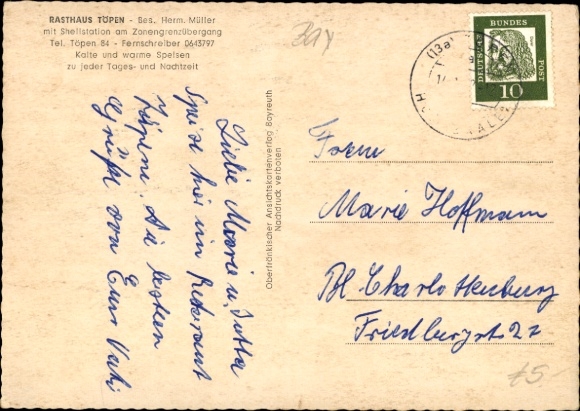 RASTHAUS TÖPEN - Bes. Herm. Müller
mit Shellstation am Zonengrenzübergang
Tel. Töpen 84 - Fernschreiber 0643797
Kalte und warme Speisen
zu jeder Tages- und Nachtzeit
Bay
(13a)
HOF (SAALE)
DEUTSCHE BUNDESPOST
10
Liebe Maarie u. Jutta
Speise hier im Restorant
Töpene. Die besten
Grüße von Eurr Vati
Oberfränkischer Ansichtskartenverlag Bayreuth
Nachdruck verboten
Marie Hoffmann
Bl Charlottenburg
Friedbergst 27
£5.-